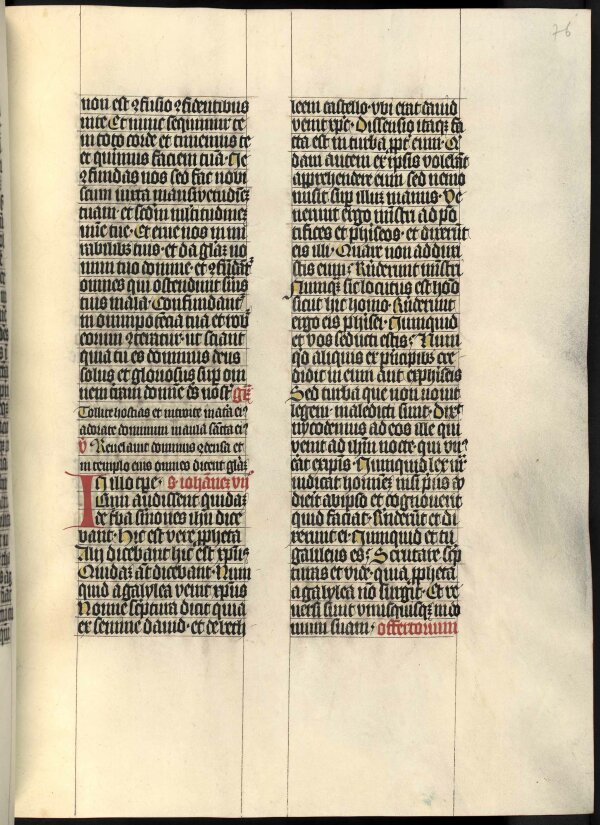 76
non est ꝯfusio ꝯfidentibus
in te Et nunc sequimur te
in toto corde et timemus te
et querimus faciem tuā Ne
ꝯfundas nos sed fac nobi
scum iuxta mansuetudinē
tuam et scđm multitudinē
mīe tue Et erue nos in mi
rabilibꝫ tuis et da glaꝫ no
mini tuo domine et ꝯfūdātr̄
omnes qui ostendunt suis
tuis mala Confundantr̄
in omnipotēcia tua et rob
eorum ꝯteratur ut sciant
quia tu es dominus deus
solus et gloriosus sup om
nem terrā domīe ds nost gͬ
Tollite hostias et introite in atria eiꝰ
adorate dominum in aula sancta eiꝰ
v̄ Reuelauit dominus ꝯdensa et
in templo eius omnes dicent glāꝫ
In illo tpe s iohānez vii
cum audissent quidaꝫ
de turba sermones ihu dice
bant Hic est vere ꝓpheta
Alij dicebant hic est xpus
Quidaꝫ at dicebant Num
quid a galylea venit xpus
Nonne scptura dicit quia
ex semine dauid et de beth
leem castello vbi erat dauid
venit xpc Dissensio itaqꝫ fa
cta est in turba ꝓpt eum Q
dam autem ex ipsis volebāt
apprehendere eum sed nemo
misit sup illuꝫ manus Ve
nerunt ergo mīstri ad põ
tifices et phiseos et dixerūt
eis illi Quare non adduxi
stis eum Rn̄derunt mīstri
Nunqꝫ sic locutus est hō
sicut hic homo Rn̄derunt
ergo eis phisei Numquid
et vos seducti estis Num
qd aliquis ex pͥncipibus cre
didit in eum aut ex phiseis
Sed turba que non nouit
legem maledicti sunt Dixͭ
nycodemus ad eos ille qui
venit ad ihm nocte qui vnꝰ
erat ex ipis Numquid lex nr̄
iudicat hominē nisi priꝰ au
dierit ab ipso et cognouerit
quid faciat Rn̄derūt et di
xerunt ei Numquid et tu
galileus es Scrutare scp
turas et vide quia ꝓpheta
a galylea nō surgit Et re
uersi sunt vnusquisqꝫ in do
mum suam offertorium